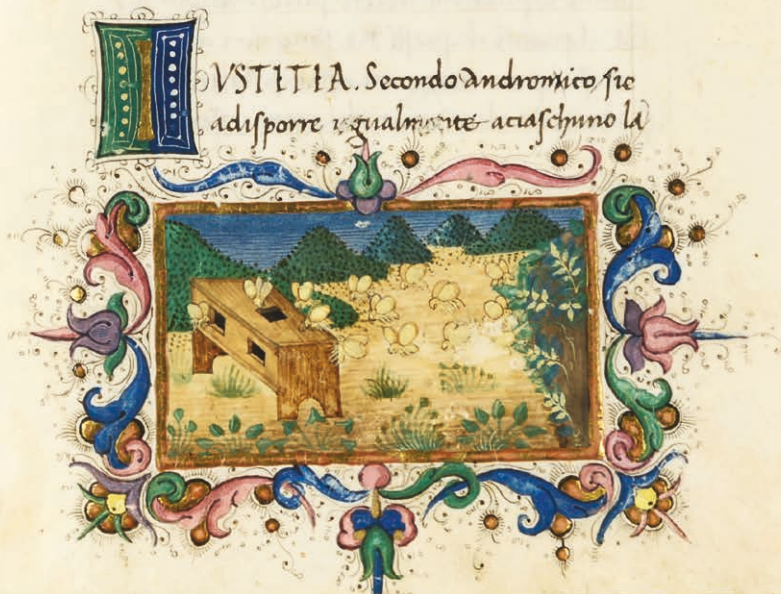 IVSTITIA. Secondo andromico sie
adisporre igualmente aciaschuno la